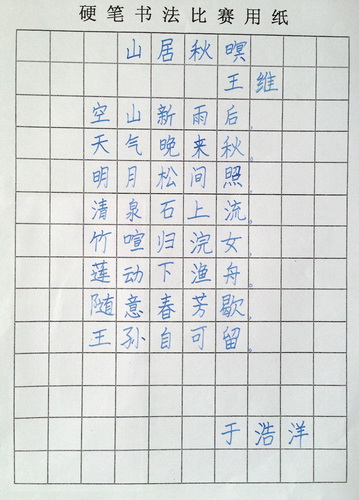 硬笔书法比赛用纸
山居秋暝
王维
空山新雨后,
天气晚来秋。
明月松间照,
清泉石上流。
竹喧归浣女,
莲动下渔舟。
随意春芳歇,
王孙自可留。
于浩洋